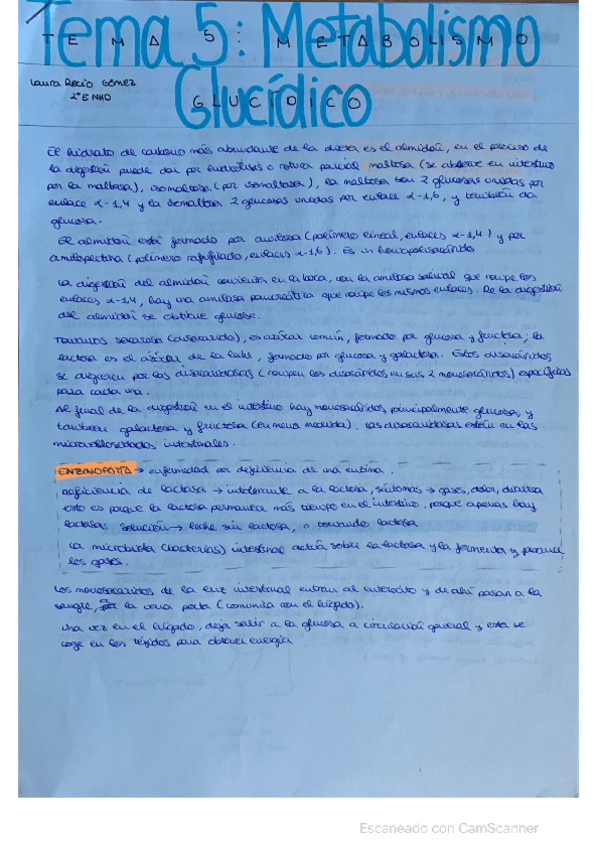 Tema 5: Metabolismo
TEMA 5: METABOLISMO
Glucídico
GLUCÍDICO
Laura Recio Gómez
2º E NHD
El hidrato de carbono más abundante de la dieta es el almidón, en el proceso de
la digestión puede dar por hidrólisis o rotura parcial maltosa (se absorbe en intestino
por la maltasa), isomaltosa (por isomaltasa), la maltosa son 2 glucosas unidas por
enlace α-1,4 y la isomaltosa 2 glucosas unidas por enlace α-1,6, y también da
glucosa.
El almidón está formado por amilosa (polímero lineal, enlaces α-1,4) y por
amilopectina (polímero ramificado, enlaces α-1,6). Es un homopolisacárido
La digestión del almidón comienza en la boca, con la amilasa salival que rompe los
enlaces α-1,4, hay una amilasa pancreática que rompe los mismos enlaces. De la digestión
del almidón se obtiene glucosa.
Tomamos sacarosa (disacárido), es azúcar común, formado por glucosa y fructosa; la
lactosa es el azúcar de la leche, formado por glucosa y galactosa. Estos disacáridos
se digieren por las disacaridasas (rompen los disacáridos en sus 2 monosacáridos) específicas
para cada una.
Al final de la digestión en el intestino hay monosacáridos principalmente glucosa, y
también galactosa y fructosa (en menor medida). Las disacaridasas están en las
microvellosidades intestinales.
ENZIMOPATÍA → enfermedad por deficiencia de una enzima.
Deficiencia de lactasa → intolerante a la lactosa, síntomas → gases, dolor, diarrea
esto es porque la lactosa permanece más tiempo en el intestino, porque apenas hay
lactasa. Solución → leche sin lactosa, o tomando lactasa
La microbiota (bacterias) intestinal actúa sobre la lactosa y la fermenta y produce
los gases.
Los monosacáridos de la luz intestinal entran al enterocito y de ahí pasan a la
sangre, a la vena porta (comunica con el hígado).
Una vez en el hígado, deja salir a la glucosa a circulación general y esta se
coge en los tejidos para obtener energía
Escaneado con CamScanner